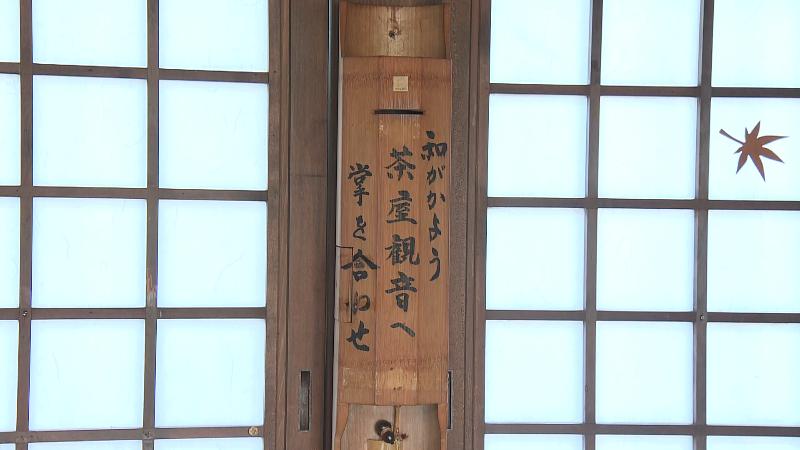 和がかよう
茶屋観音へ
掌を合わせ